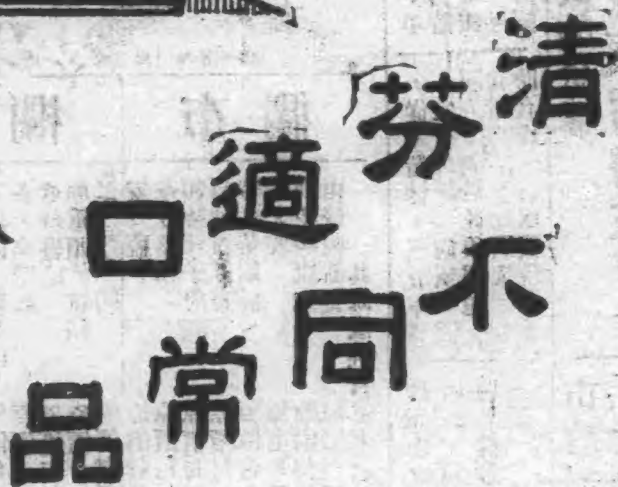 清芬適口
不同常品